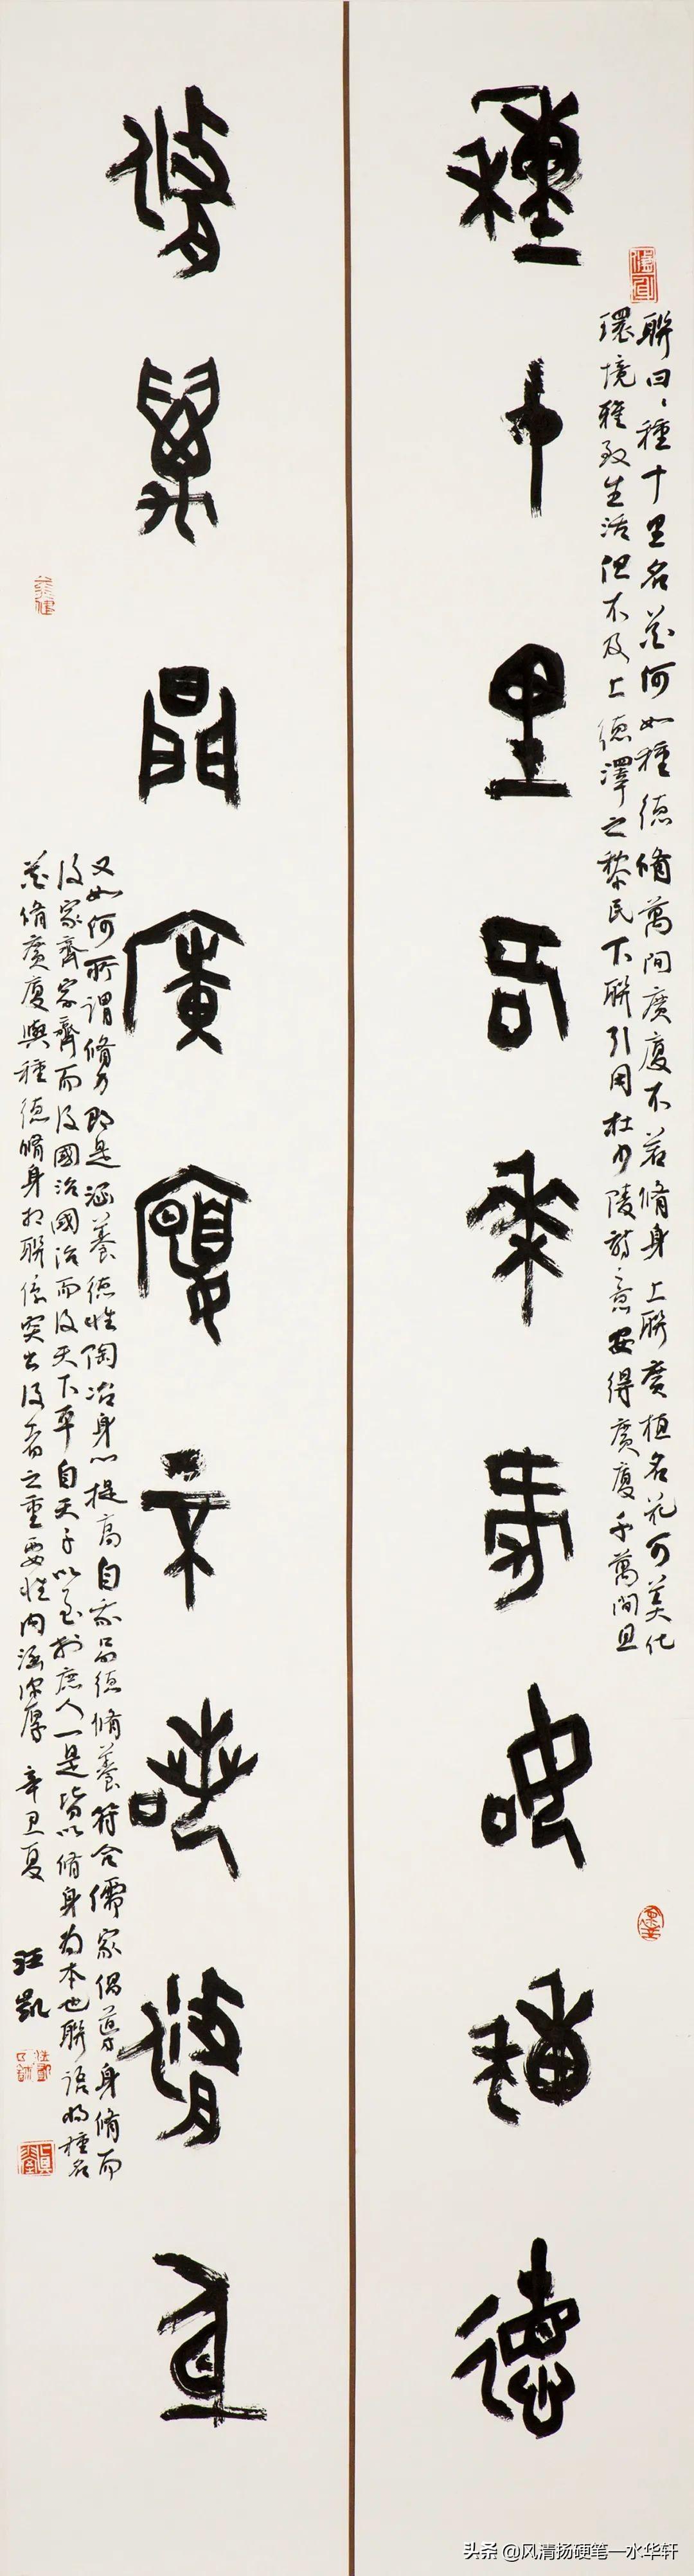 種十里名花何如種德
脩萬間廣廈不若脩身
聯曰：種十里名花何如種德脩萬間廣廈不若脩身上聯廣植名花可美化
環境雅致生活但不及上德澤之黎民下聯引用杜少陵詩意安得廣廈千萬間且
又如何所謂脩身即是涵養德性陶冶身心提高自我品德脩養符合儒家倡導身脩而
後家齊家齊而後國治國治而後天下平自天子以至於庶人一是皆以脩身為本也聯語將種名
花脩廣廈與種德脩身相聯係突出後者之重要性內涵深厚 辛丑夏
汪凱
头条 @风清扬硬笔一水华轩